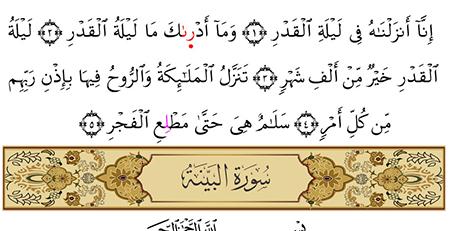 إِنَّآ أَنزَلْنَٰهُ فِى لَيْلَةِ ٱلْقَدْرِ ﴿١﴾ وَمَآ أَدْرىٰكَ مَا لَيْلَةُ ٱلْقَدْرِ ﴿٢﴾ لَيْلَةُ
ٱلْقَدْرِ خَيْرٌ مِّنْ أَلْفِ شَهْرٍ ﴿٣﴾ تَنَزَّلُ ٱلْمَلَٰٓئِكَةُ وَٱلرُّوحُ فِيهَا بِإِذْنِ رَبِّهِم
مِّن كُلِّ أَمْرٍ ﴿٤﴾ سَلَٰمٌ هِىَ حَتَّىٰ مَطْلِعِ ٱلْفَجْرِ ﴿٥﴾
سُورَةُ الْبَيِّنَةِ